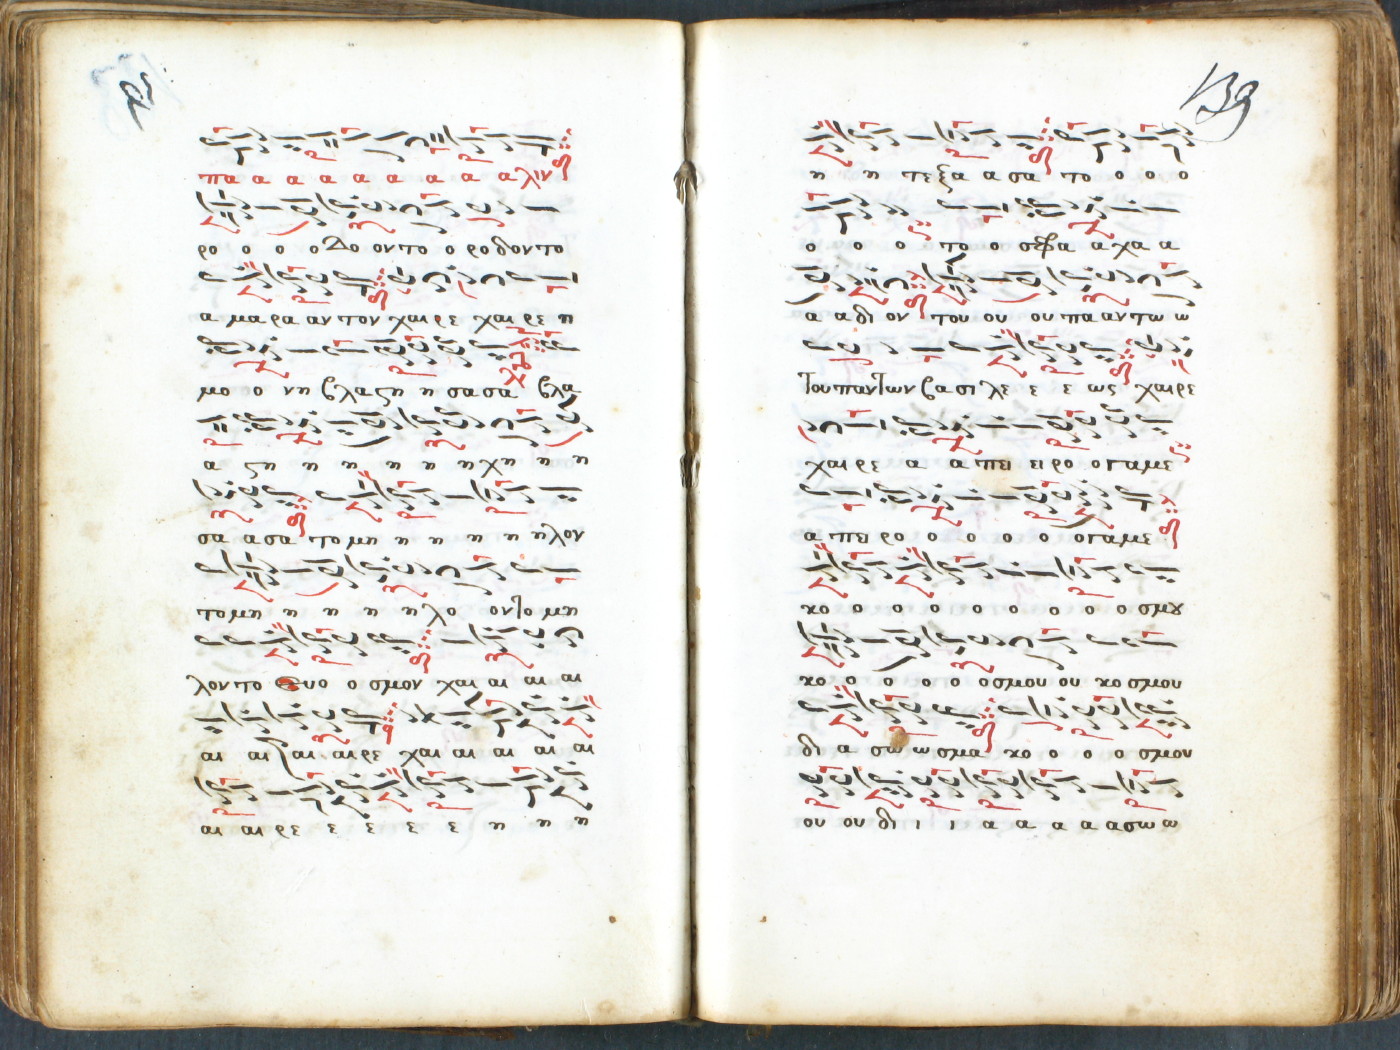 πα α α α α α α α α αλιν
ρο ο ο ο δο οντο ο ροδοντο
α μαρα αν τον χαιρε χαιρε η
μο ο νη βλαςη η σασα βλα
α ςη η η η η η χη η η
σα α σα το μη η η η η ηλον
το μη η η η η λο ον το μη
λον το ευο ο σμον χαι αι αι αι
αι αι αι αιρε χαι αι αι αι αι
αι αι ρε ε ε ε ε η η η
139
η η τεξα α σα το ο ο ο
ο ο ο το ο σεβα α χα α
α α δι ον του ου ου πα αντω ω
του παντων βασι λε ε ε ως χαιρε
χαιρε α α πει ει ρο ο γαμε
α πει ρο ο ο ο ο ο γαμε
κο ο ο ο ο ο ο ο ο σμȣ
κο ο ο ο ο οσμου ου κο σμου
δι α σω ωσμα κο ο ο ο σμου
ου ου δι ι ι α α α α ασω ω